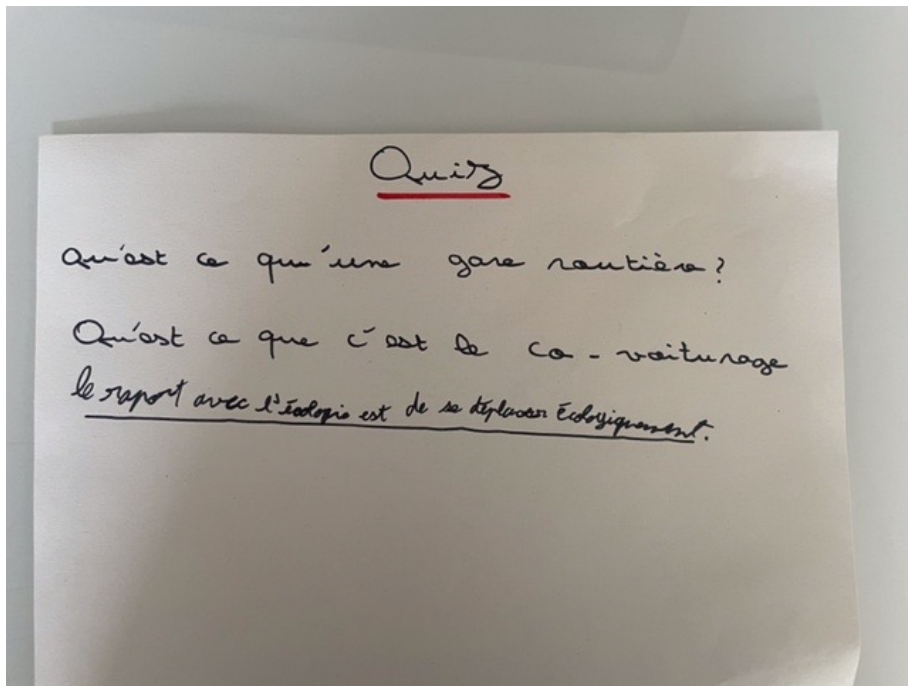 Quiz
Qu'est ce qu'une gare routière ?
Qu'est ce que c'est le co-voiturage
le raport avec l'écologie est de se déplacer écologiquement.